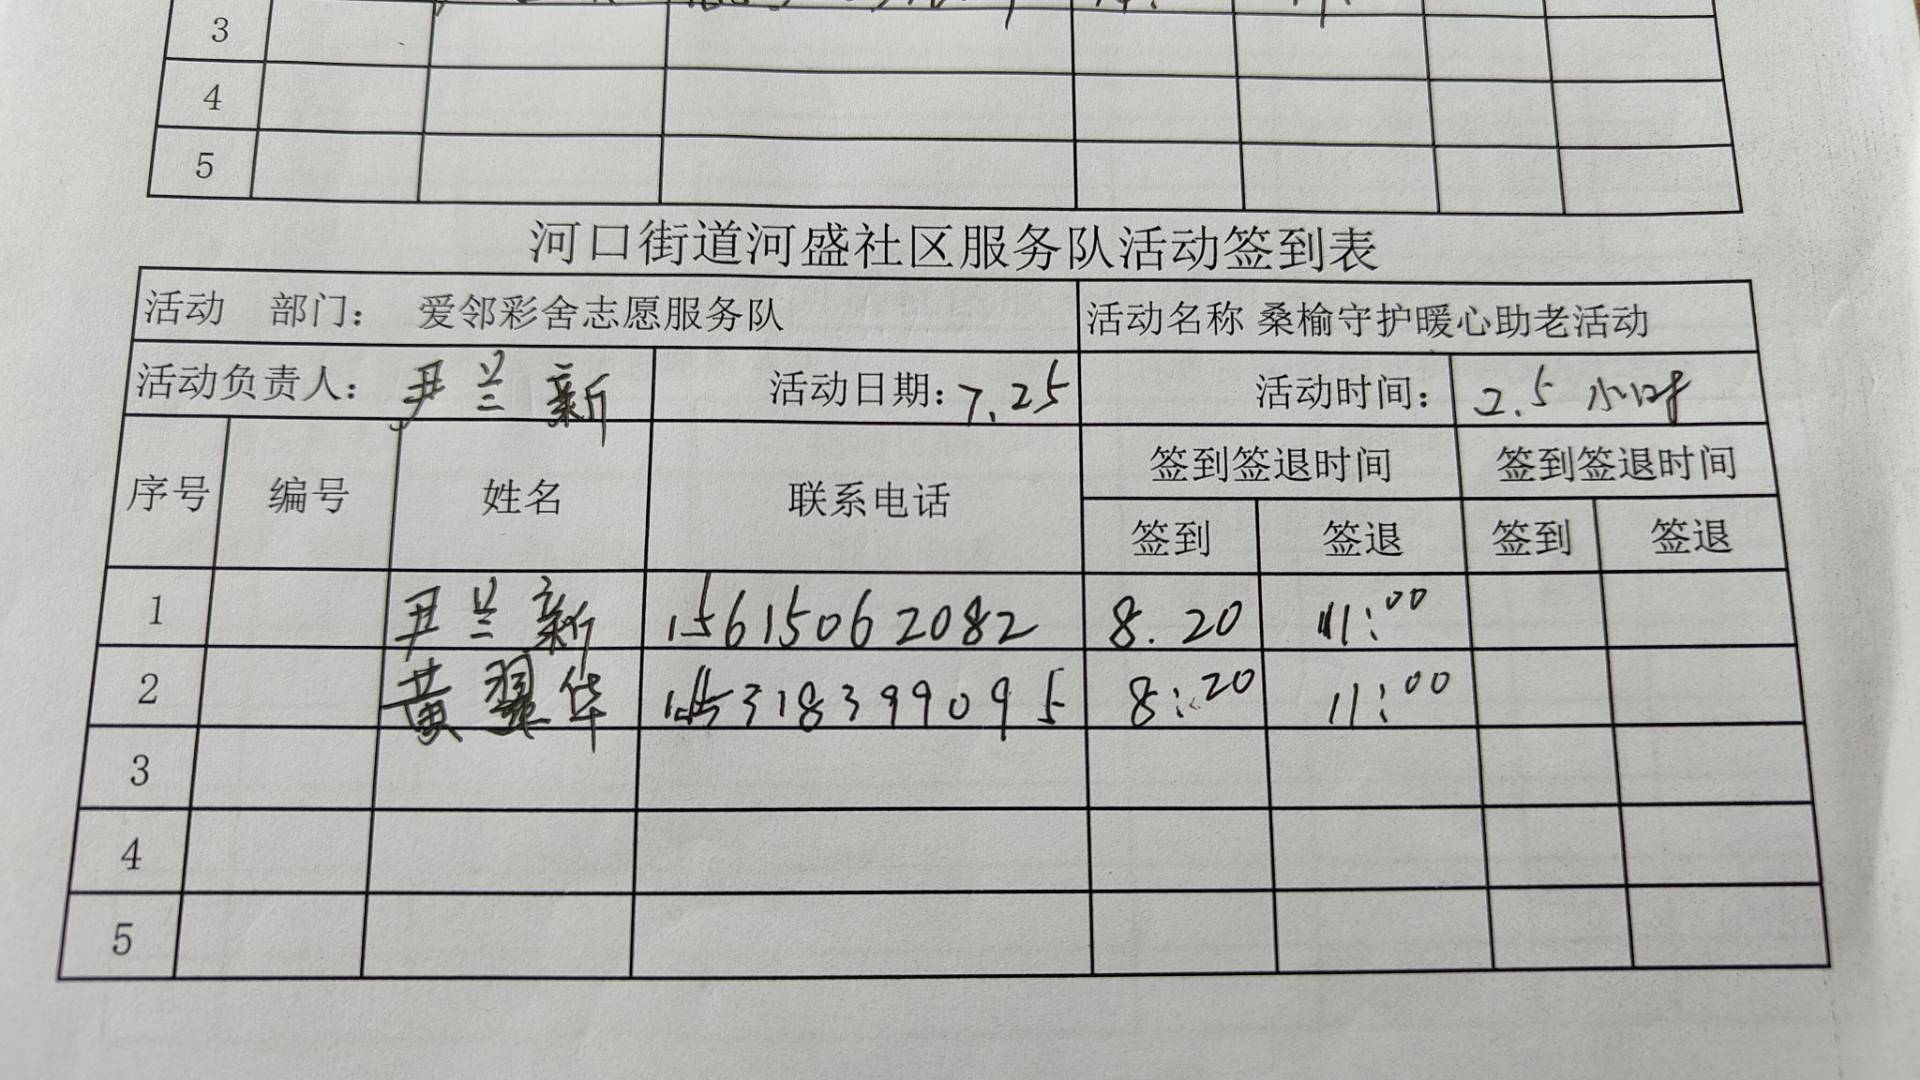 3
4
5
河口街道河盛社区服务队活动签到表
活动 部门： 爱邻彩舍志愿服务队 活动名称 桑榆守护暖心助老活动
活动负责人： 尹兰新 活动日期：7.25 活动时间： 2.5 小时
序号 编号 姓名 联系电话 签到签退时间 签到签退时间
签到 签退 签到 签退
1 尹兰新 15615062082 8.20 11:00
2 黄翠华 8:20 11:00
3
4
5